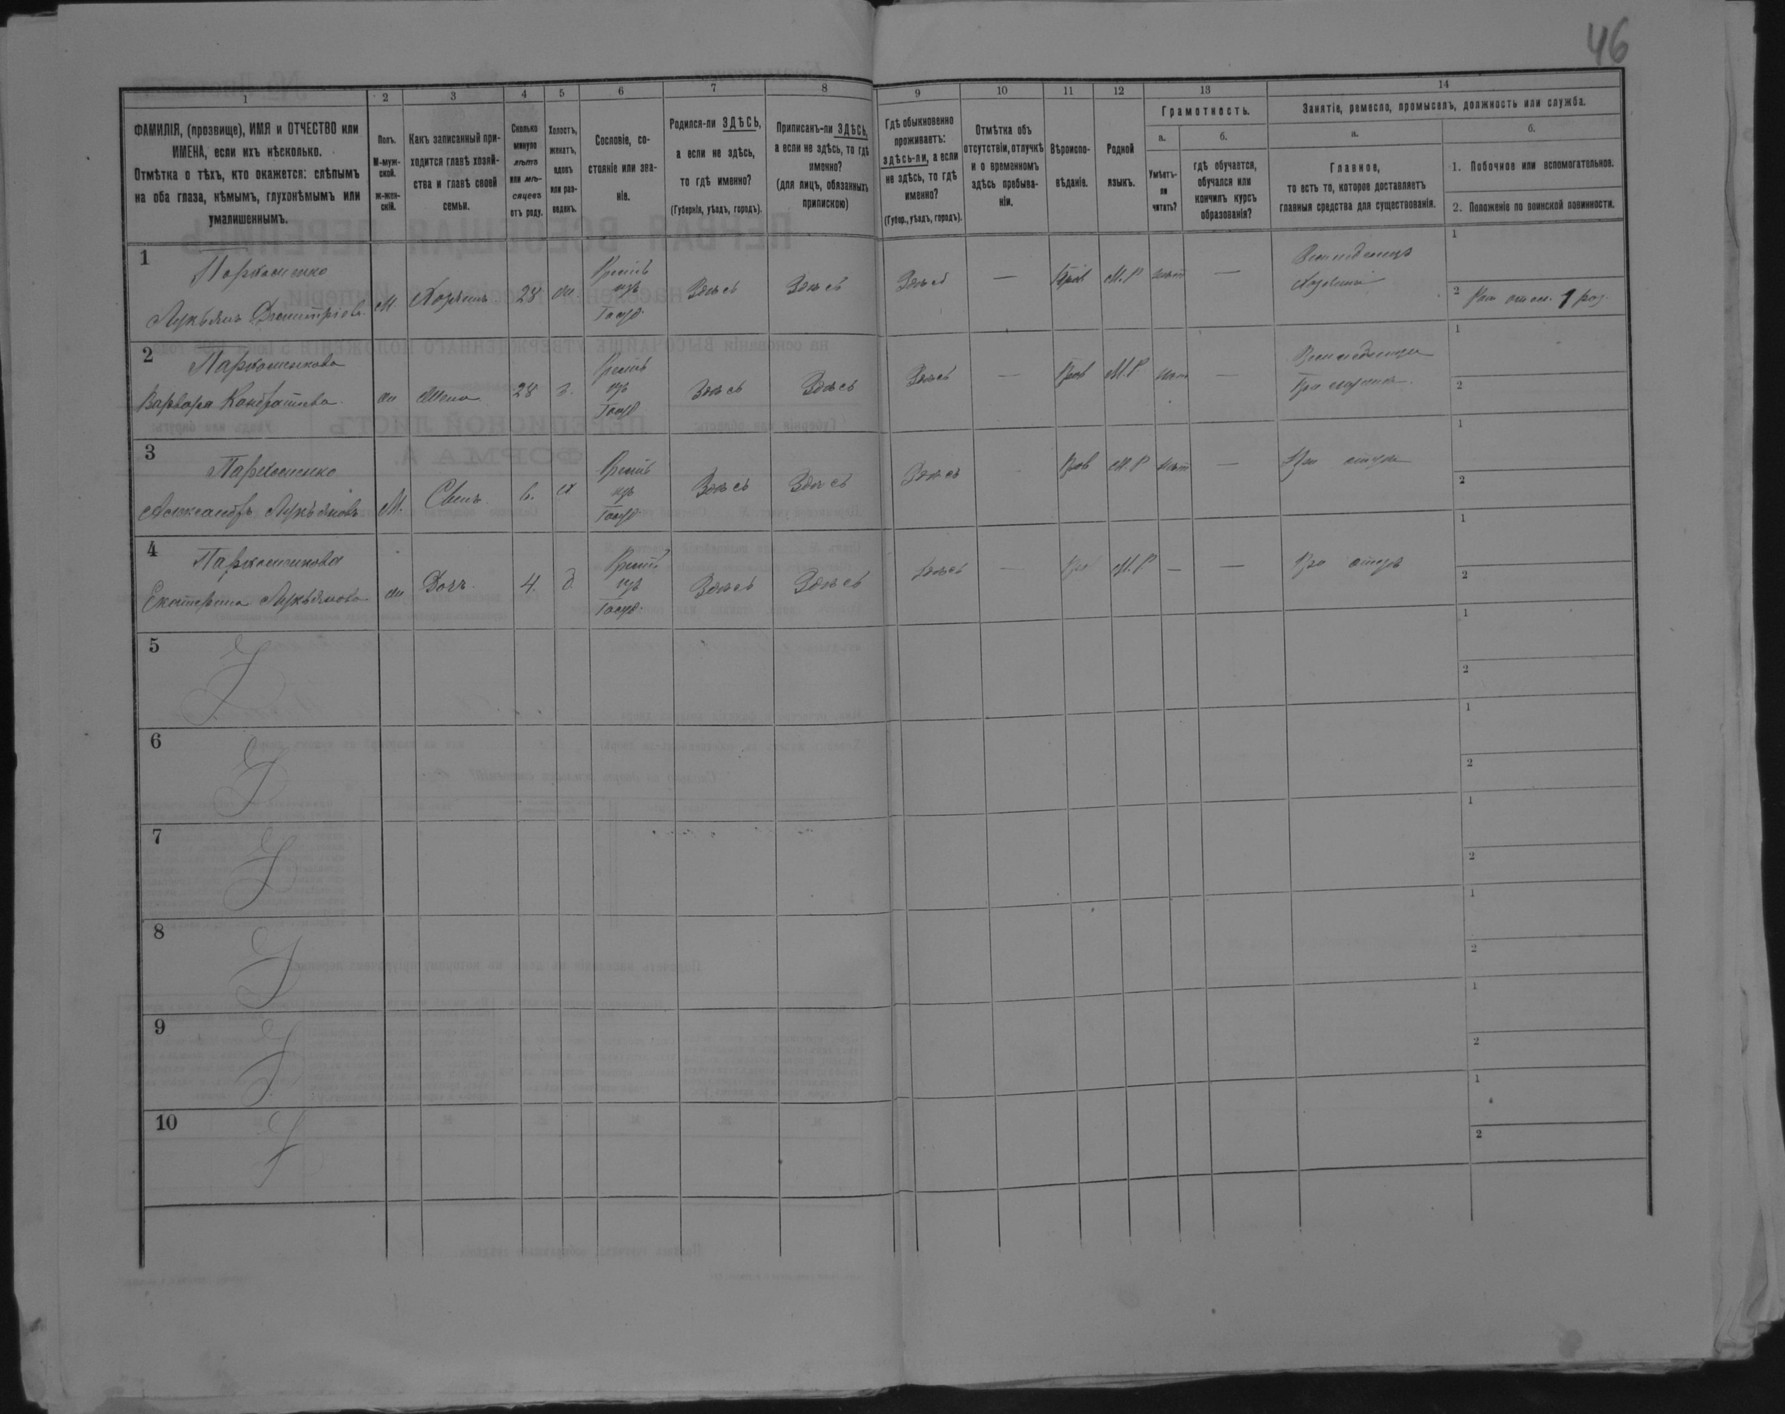 46
1
2
3
4
5
6
7
8
9
10
11
12
13
14
ФАМИЛІЯ, (прозвище), ИМЯ и ОТЧЕСТВО или
ИМЕНА, если ихъ нѣсколько.
Отмѣтка о тѣхъ, кто окажется: слѣпымъ
на оба глаза, нѣмымъ, глухонѣмымъ или
умалишеннымъ.
Полъ.
М-муж-
ской.
ж-жен-
скій.
Какъ записанный при-
ходится главѣ хозяй-
ства и главѣ своей
семьи.
Сколько
минуло
лѣтъ
или мѣ-
сяцевъ
отъ роду.
Холостъ,
женатъ,
вдовъ
или раз-
веденъ.
Сословіе, со-
стояніе или зва-
ніе.
Родился-ли ЗДѢСЬ,
а если не здѣсь,
то гдѣ именно?
(Губернія, уѣздъ, городъ).
Приписанъ-ли ЗДѢСЬ,
а если не здѣсь, то гдѣ
именно?
(для лицъ, обязанныхъ
припискою)
Гдѣ обыкновенно
проживаетъ:
здѣсь-ли, а если
не здѣсь, то гдѣ
именно?
(Губер., уѣздъ, городъ).
Отмѣтка объ
отсутствіи, отлучкѣ
и о временномъ
здѣсь пребыва-
ніи.
Вѣроиспо-
вѣданіе.
Родной
языкъ.
Грамотность.
а.
Умѣетъ-
ли
читать?
б.
гдѣ обучается,
обучался или
кончилъ курсъ
образованія?
Занятіе, ремесло, промыселъ, должность или служба.
а.
Главное,
то есть то, которое доставляетъ
главныя средства для существованія.
б.
1. Побочное или вспомогательное.
2. Положеніе по воинской повинности.
1
Пархоменко
Лукьянъ Дмитріевъ
М
Хозяинъ
28
ж
Крест
изъ
Госуд
Здѣсь
Здѣсь
Здѣсь
—
Прав
М.Р
нѣт
—
Земледѣлецъ
Хозяинъ
1
2
1 раз.
2
Пархоменкова
Варвара Кондратьева
ж
Жена
28
з.
Крест
изъ
Госуд
Здѣсь
Здѣсь
Здѣсь
—
Прав
М.Р
нѣт
—
Земледѣлец
При мужѣ
1
2
3
Пархоменко
Александръ Лукьяновъ
М.
Сынъ
6.
х
Крест
изъ
Госуд
Здѣсь
Здѣсь
Здѣсь
Прав
М.Р
нѣт
—
При отцѣ
1
2
4
Пархоменкова
Екатерина Лукьянова
ж
Дочь
4.
д
Крест
изъ
Госуд.
Здѣсь
Здѣсь
Здѣсь
—
Пра
М.Р
—
—
При отцѣ
1
2
5
1
2
6
1
2
7
1
2
8
1
2
9
1
2
10
1
2